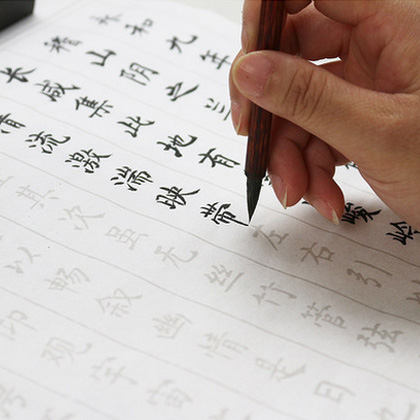 永和九年
稽山阴之兰
长咸集此地有峻岭
清流激湍映带左右引
其次虽无丝竹管弦
以畅叙幽情是日
仰观宇宙